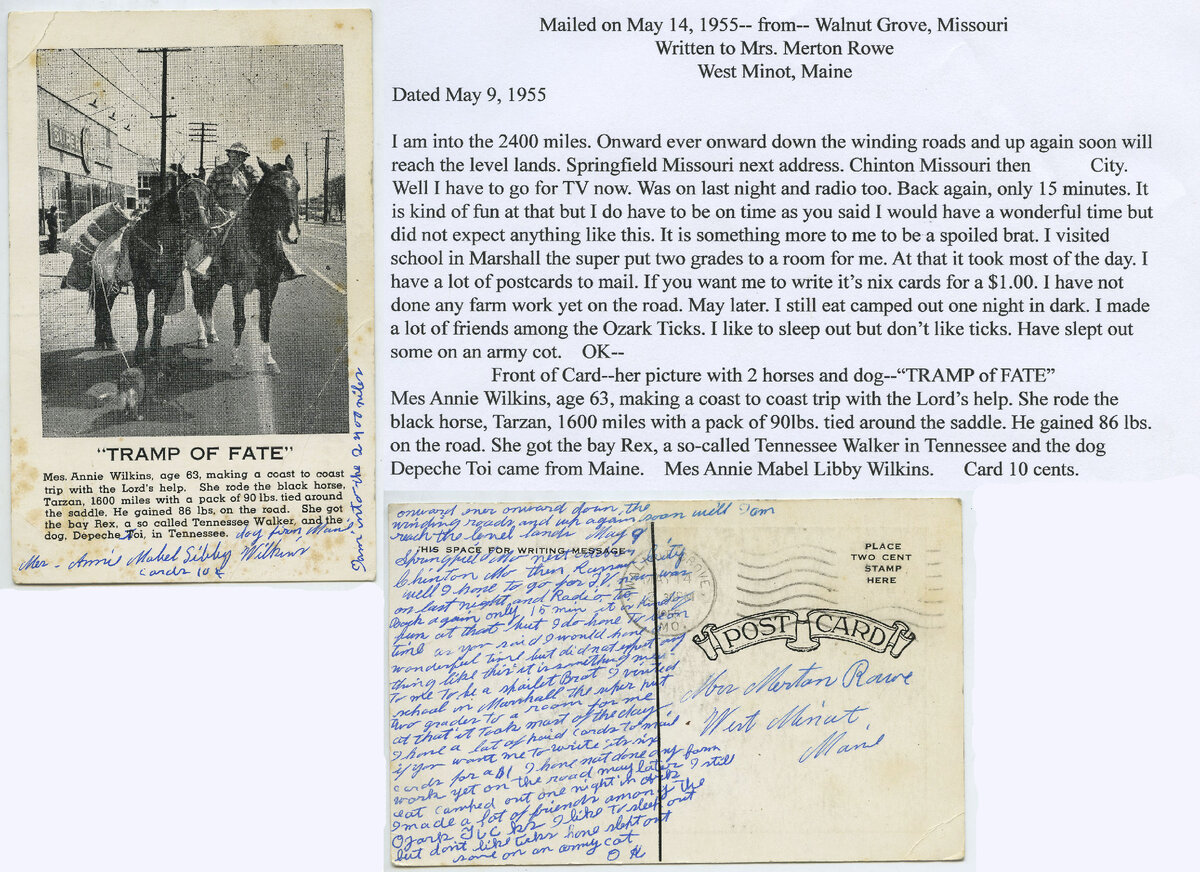 Mailed on May 14, 1955-- from-- Walnut Grove, Missouri
Written to Mrs. Merton Rowe
West Minot, Maine
Dated May 9, 1955
I am into the 2400 miles. Onward ever onward down the winding roads and up again soon will
reach the level lands. Springfield Missouri next address. Chinton Missouri then City.
Well I have to go for TV now. Was on last night and radio too. Back again, only 15 minutes. It
is kind of fun at that but I do have to be on time as you said I would have a wonderful time but
did not expect anything like this. It is something more to me to be a spoiled brat. I visited
school in Marshall the super put two grades to a room for me. At that it took most of the day. I
have a lot of postcards to mail. If you want me to write it’s nix cards for a $1.00. I have not
done any farm work yet on the road. May later. I still eat camped out one night in dark. I made
a lot of friends among the Ozark Ticks. I like to sleep out but don’t like ticks. Have slept out
some on an army cot. OK--
Front of Card--her picture with 2 horses and dog--“TRAMP of FATE”
Mes Annie Wilkins, age 63, making a coast to coast trip with the Lord’s help. She rode the
black horse, Tarzan, 1600 miles with a pack of 90lbs. tied around the saddle. He gained 86 lbs.
on the road. She got the bay Rex, a so-called Tennessee Walker in Tennessee and the dog
Depeche Toi came from Maine. Mes Annie Mabel Libby Wilkins. Card 10 cents.
“TRAMP OF FATE”
Mes. Annie Wilkins, age 63, making a coast to coast
trip with the Lord's help. She rode the black horse,
Tarzan, 1600 miles with a pack of 90 lbs. tied around
the saddle. He gained 86 lbs, on the road. She got
the bay Rex, a so called Tennessee Walker, and the
dog, Depeche Toi, in Tennessee. dog from Maine
Mes - Annie Mabel Libby Wilkins
cards 10¢
I am into the 2400 miles
onward ever onward down the
winding roads and up again soon will I am
reach the level lands May 9
THIS SPACE FOR WRITING MESSAGE
Springfield Mo next address
Chinton Mo then Kansas City
well I have to go for T.V. now was
on last night and Radio to
Back again only 15 min it is kind of
fun at that but I do have to be on
time as you said I would have
wonderful time but did not expect any
thing like this it is something more
to me to be a spoilet Brat I visited
school in Marshall the super put
two grades to a room for me
at that it took most of the day
I have a lot of paid cards to mail
if you want me to write its six
cards for a $1 I have not done any farm
work yet on the road may later I still
eat camped out one night in dark
I made a lot of friends among the
Ozark Ticks I like to sleep out
but dont like ticks have slept out
some on an army cot
O K
GROVE
MO.
PLACE
TWO CENT
STAMP
HERE
POST CARD
Mrs Merton Rowe
West Minot,
Maine